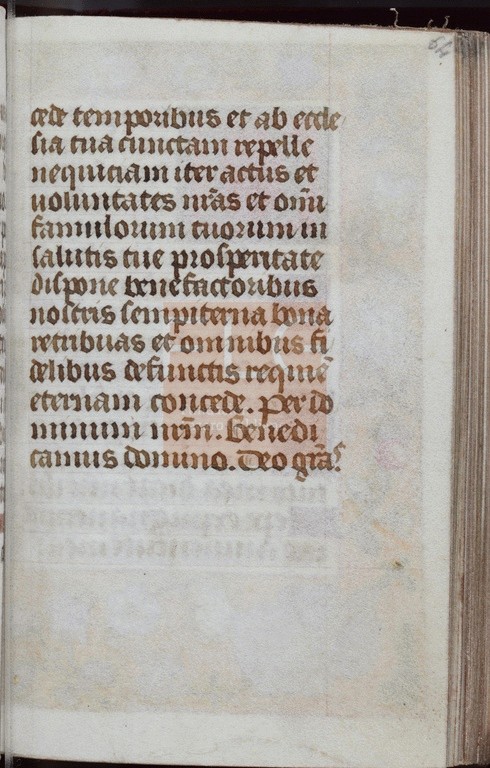 cede temporibus et ab eccle
sia tua cunctam repelle
nequiciam iter actus et
voluntates nr̄as et om̄i
famulorum tuorum in
salutis tue prosperitate
dispone benefactoribus
nostris sempiterna bona
retribuas et omnibus fi
delibus defunctis requiē
eternam concede. Per do
minum nr̄m. Benedi
camus domino. Deo grā⁹.